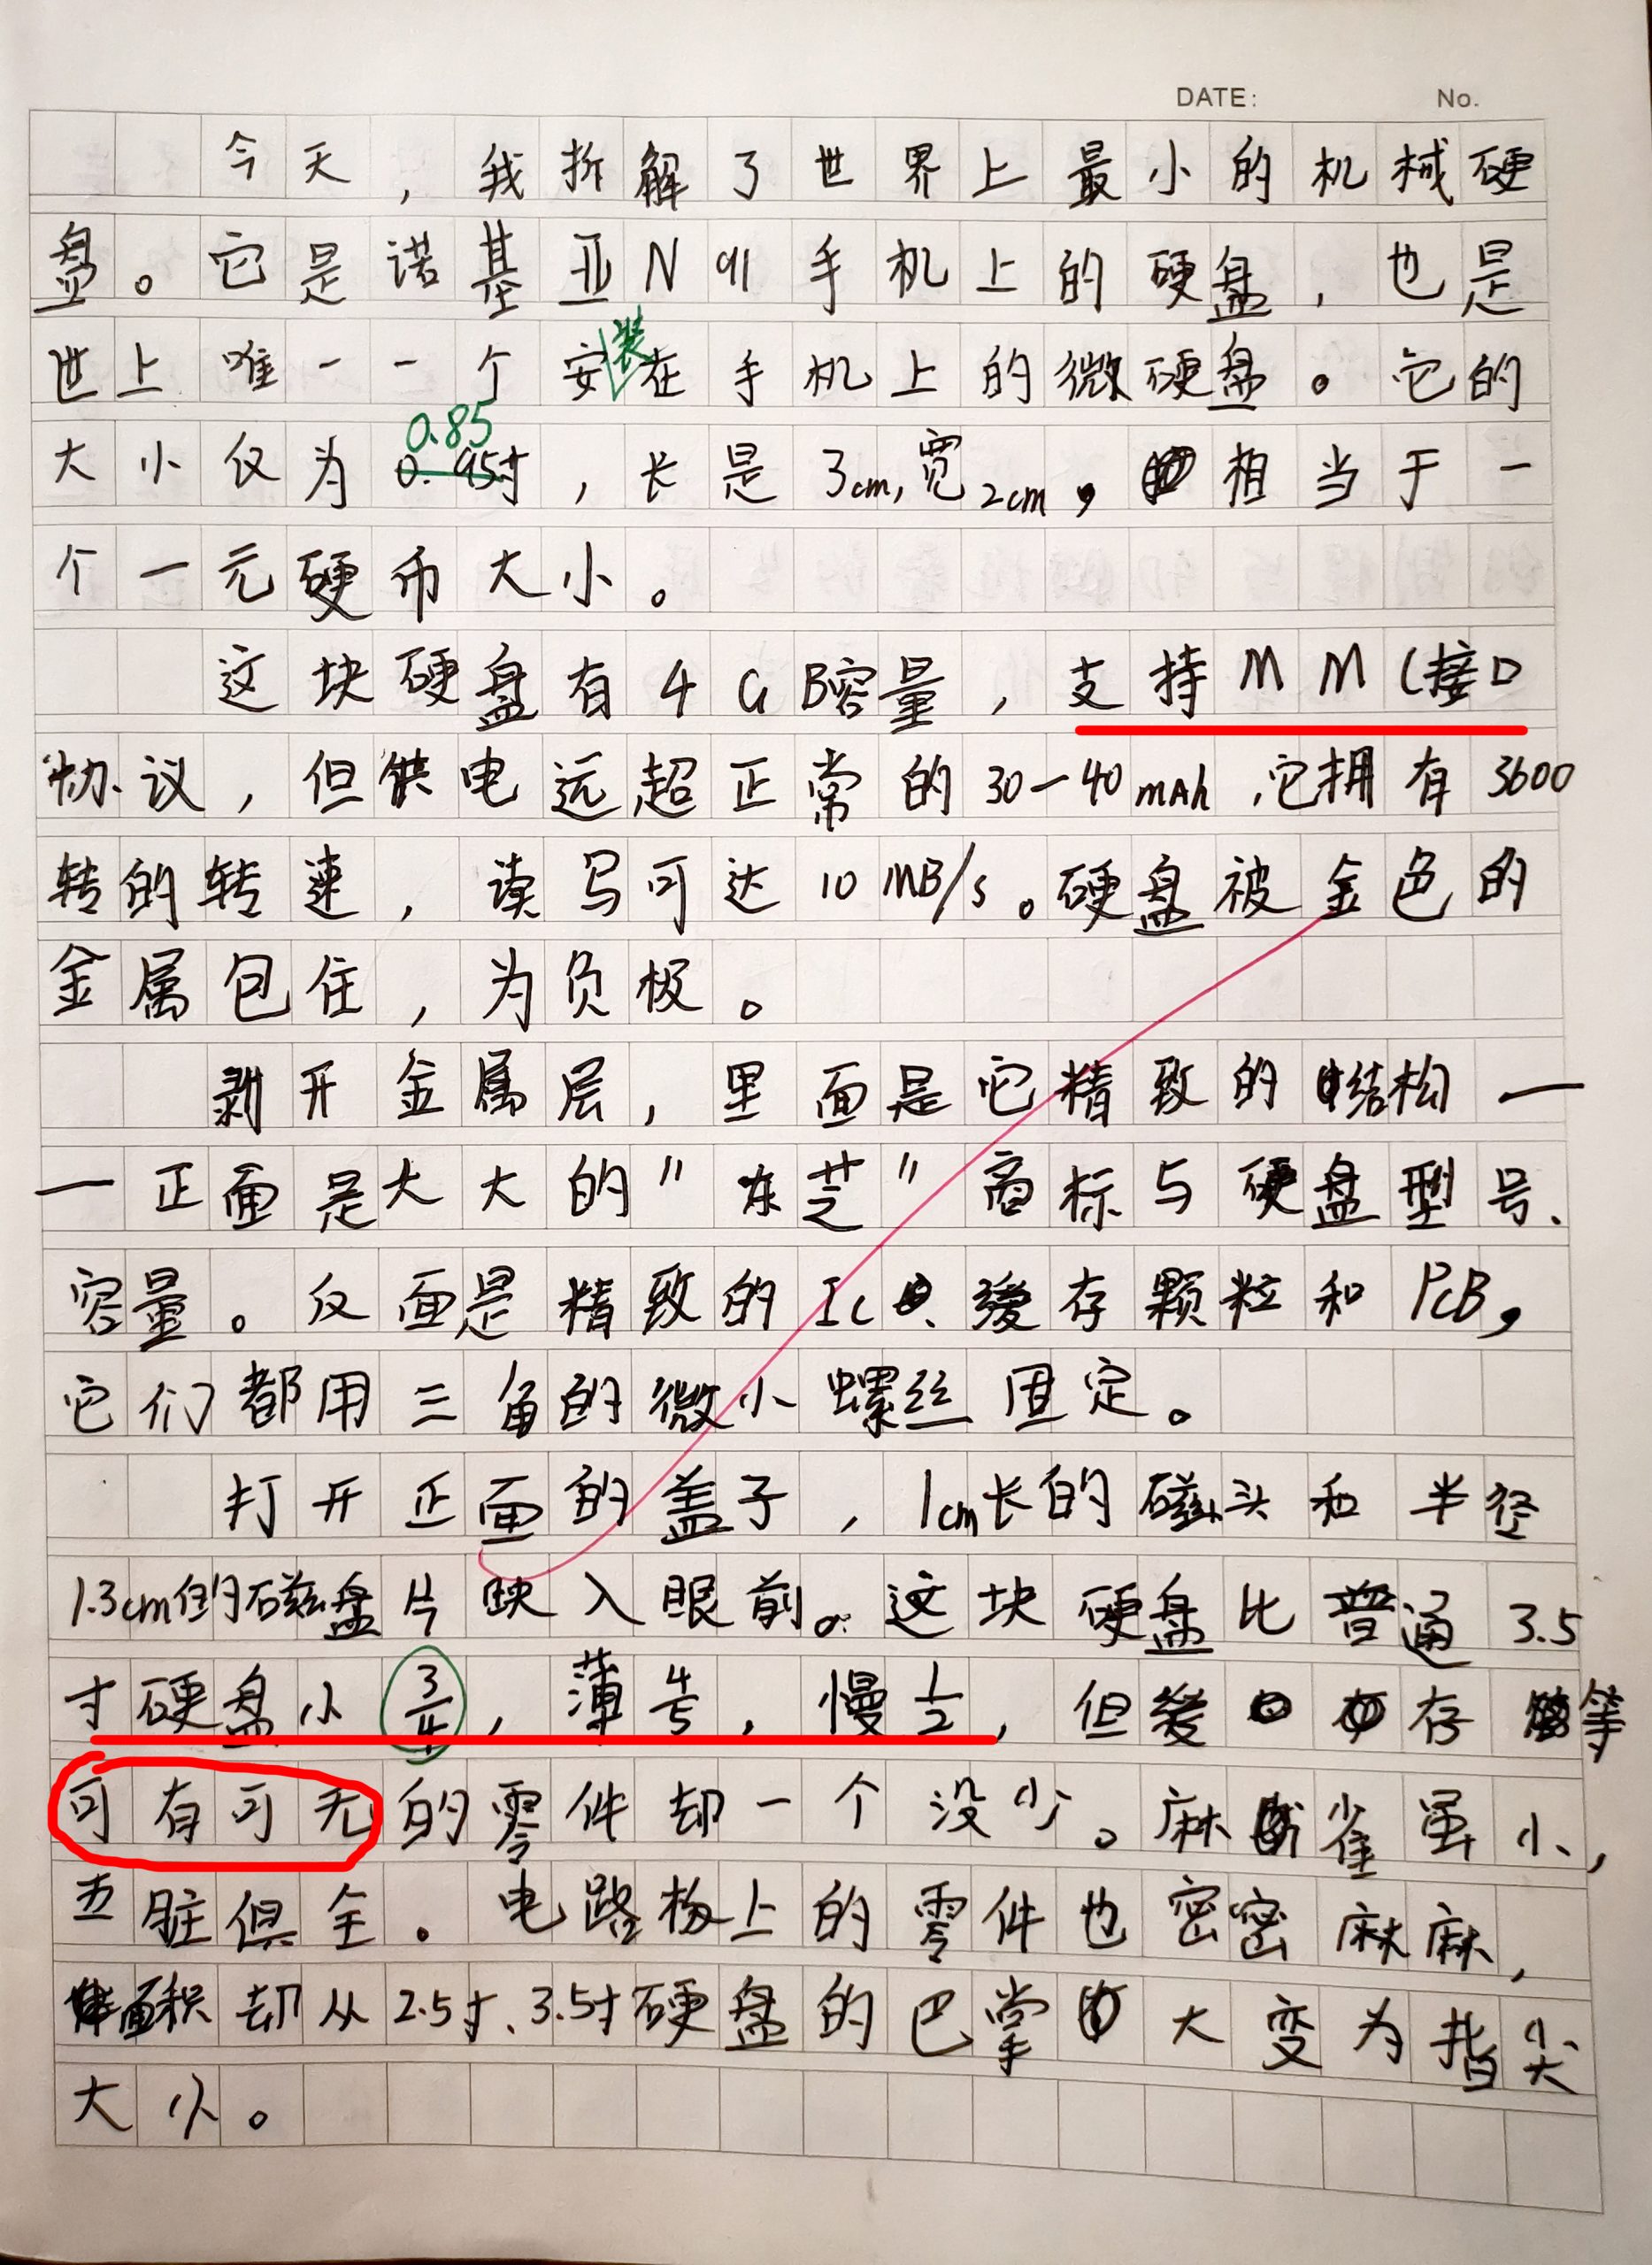 DATE: No.
今天，我拆解了世界上最小的机械硬
盘。它是诺基亚N91手机上的硬盘，也是
世上唯一一个安装在手机上的微硬盘。它的
0.85
大小仅为0.95寸，长是3cm,宽2cm，相当于一
个一元硬币大小。
这块硬盘有4GB容量，支持MMC接口
协议，但供电远超正常的30-40mAh，它拥有3600
转的转速，读写可达10MB/s。硬盘被金色的
金属包住，为负极。
剥开金属层，里面是它精致的结构—
—正面是大大的"东芝"商标与硬盘型号、
容量。反面是精致的IC、缓存颗粒和PCB，
它们都用三角的微小螺丝固定。
打开正面的盖子，1cm长的磁头和半径
1.3cm的磁盘片映入眼前。这块硬盘比普通3.5
寸硬盘小3/4，薄4/5，慢1/2，但缓存等
可有可无的零件却一个没少。麻雀虽小，
五脏俱全。电路板上的零件也密密麻麻，
面积却从2.5寸、3.5寸硬盘的巴掌大变为指尖
大小。